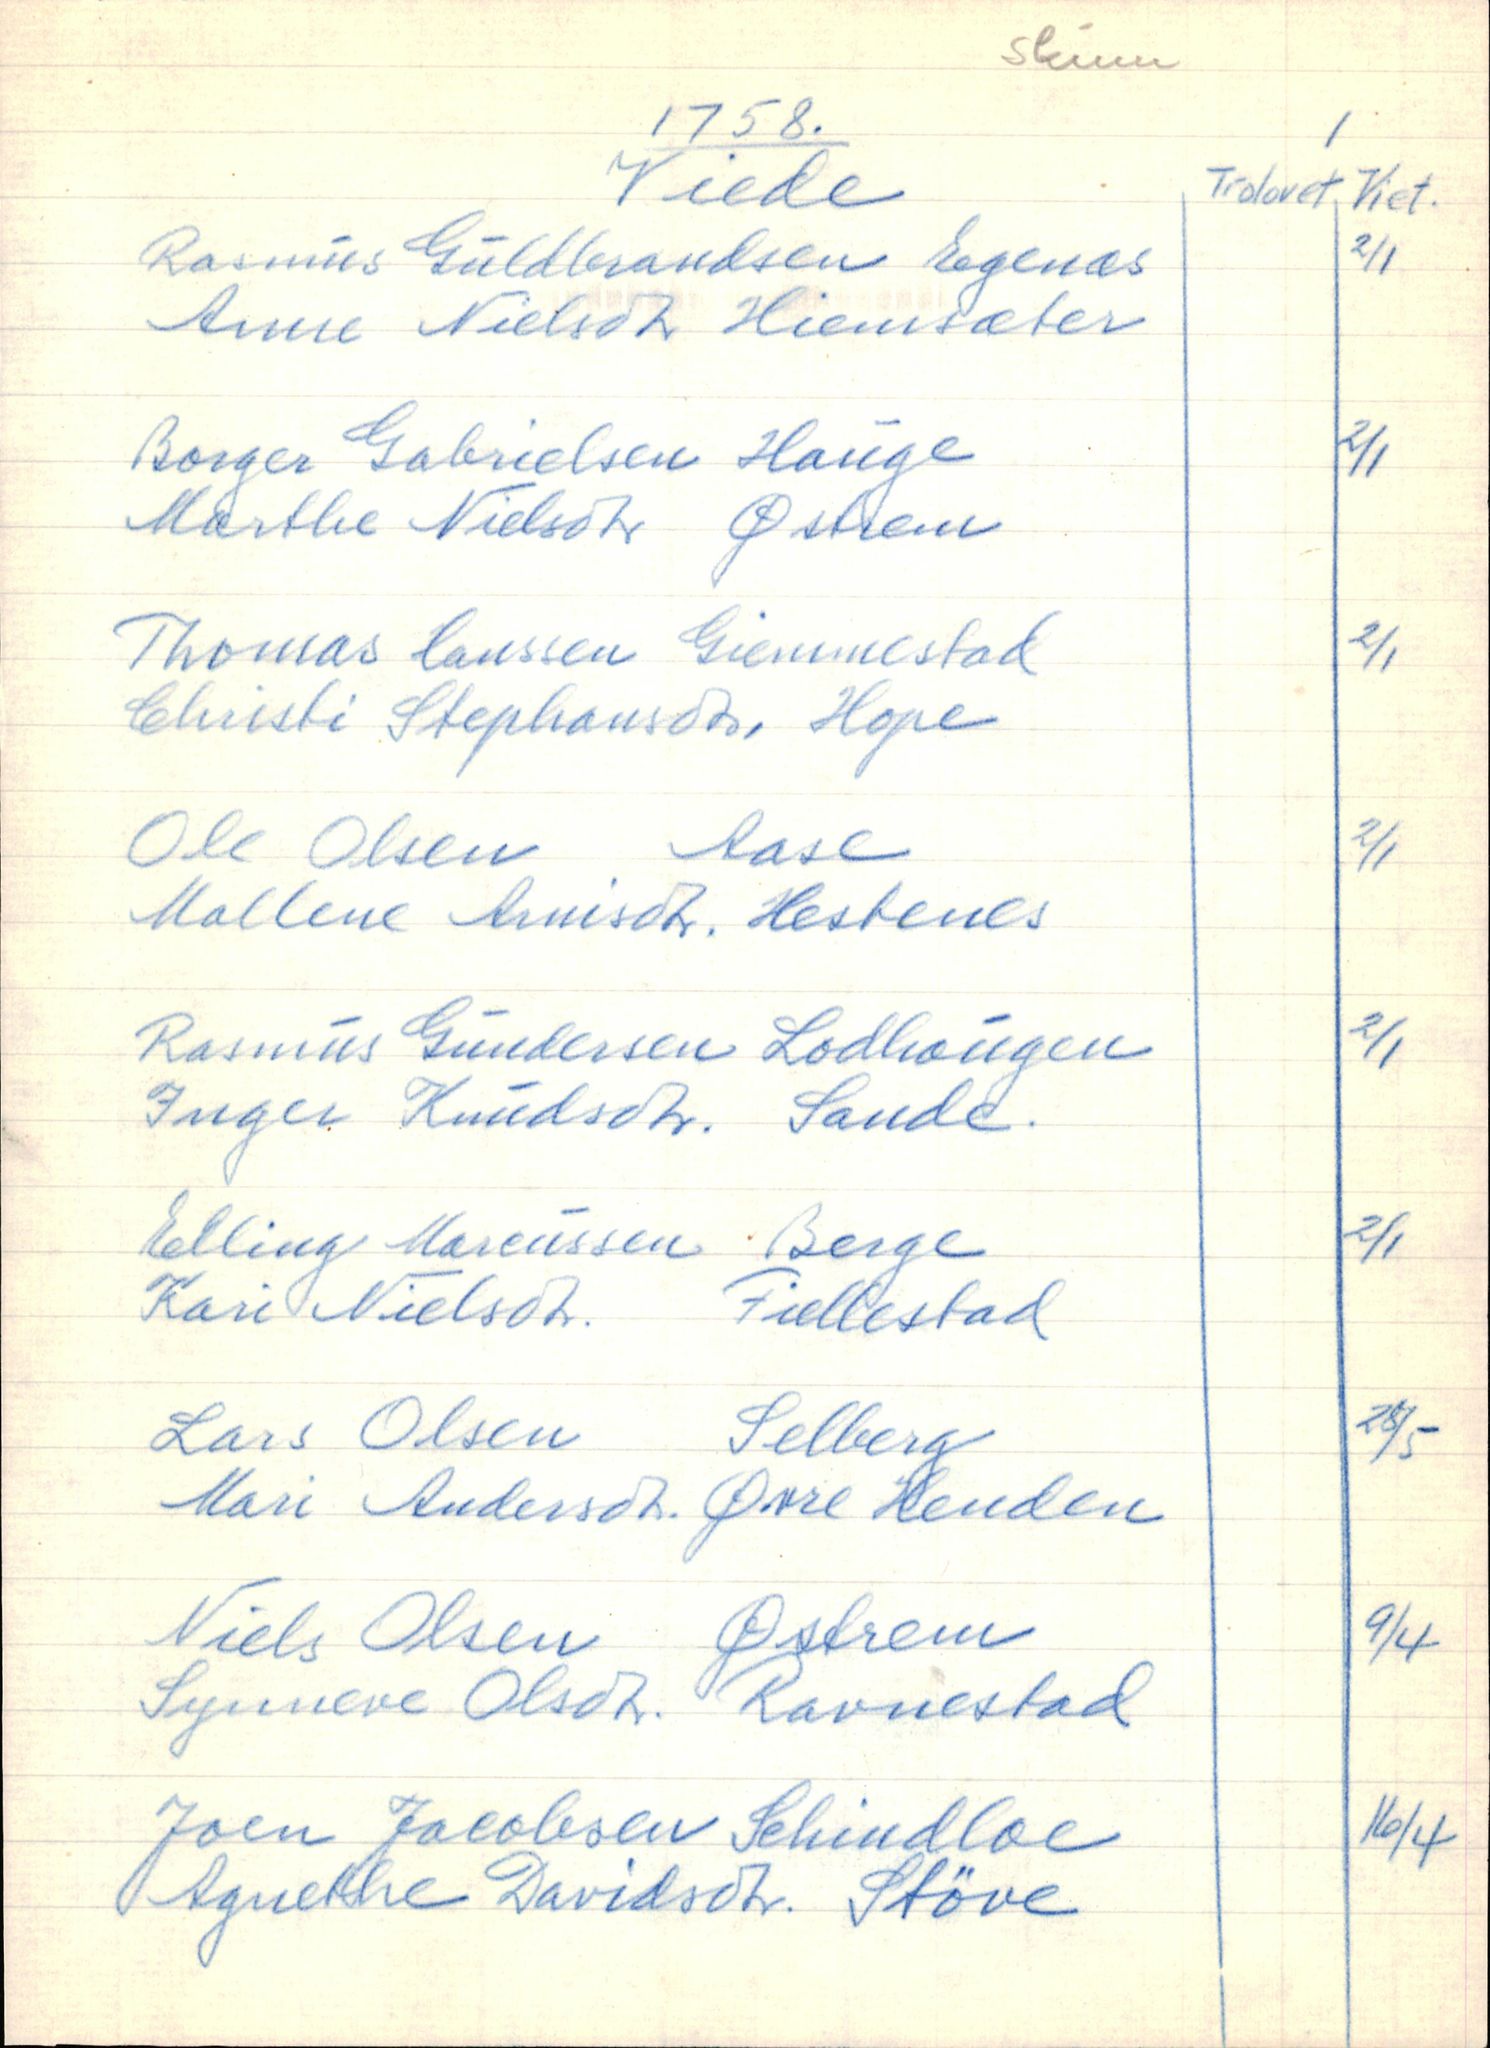 1758.
1
Viede
Trolovet Viet.
Rasmus Guldbrandsen Egenæs 2/1
Anne Nielsdtr Hiemsæter
Borger Gabrielsen Hauge 2/1
Marthe Nielsdtr Østrem
Thomas Canssen Giemmestad 2/1
Christi Stephansdtr. Hope
Ole Olsen Aase 2/1
Mallene Arnisdtr. Hestenes
Rasmus Gundersen Lodhougen 2/1
Inger Knudsdtr. Sande.
Elling Marcussen Berge 2/1
Kari Nielsdtr. Fiellestad
Lars Olsen Selberg
Mari Andersdtr. Øvre Henden
Niels Olsen Østrem 9/4
Synneve Olsdtr. Ravnestad
Joen Jacobsen Schindloe 16/4
Agnethe Davidsdtr. Stöve